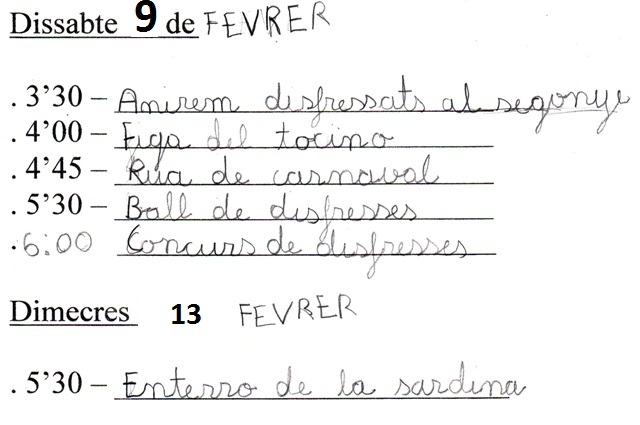 Dissabte 9 de FEVRER
. 3'30 – Anirem disfressats al segonye
. 4'00 – Figa del tocino
. 4'45 – Rua de carnaval
. 5'30 – Ball de disfresses
. 6:00 Concurs de disfresses
Dimecres 13 FEVRER
. 5'30 – Enterro de la sardina